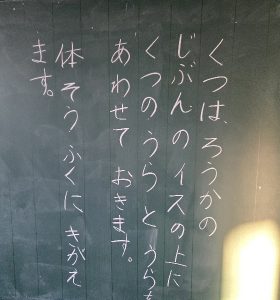 くつは、ろうかの
じぶんのイスの上に
くつのうらとうらを
あわせておきます。
体そうふくにきがえ
ます。